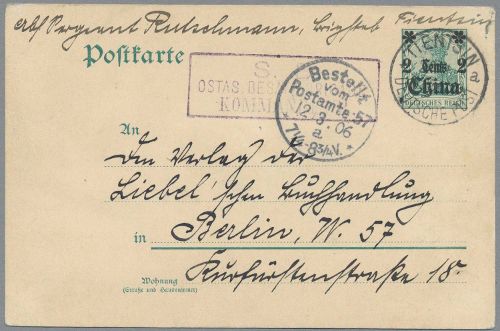 Abs. Sergeant Rutschmann, Brigsteb Tientsin
Postkarte
S.
OSTAS. BES
KOMM
Bestellt
vom
Postamte 57
12.3.06
a
7½-8¾V.
TIENTSIN
a
DEUTSCHE POST
2 Cents 2
China
DEUTSCHES REICH
An
Den Verlag der
Liebel'schen Buchhandlung
in Berlin, W. 57
Kurfürstenstraße 18.
Wohnung
(Straße und Hausnummer)